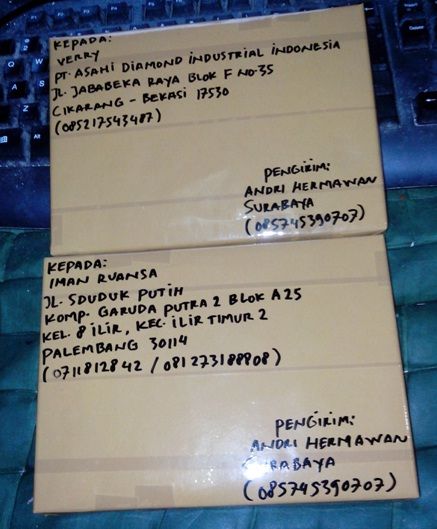 KEPADA:
VERRY
PT. ASAHI DIAMOND INDUSTRIAL INDONESIA
JL. JABABEKA RAYA BLOK F NO-35
CIKARANG - BEKASI 17530
(085217543487)
PENGIRIM:
ANDRI HERMAWAN
SURABAYA
(085745390707)
KEPADA:
IMAN RUANSA
JL. SDUDUK PUTIH
KOMP. GARUDA PUTRA 2 BLOK A25
KEL. 8 ILIR, KEC. ILIR TIMUR 2
PALEMBANG 30114
(0711812842 / 081273188908)
PENGIRIM:
ANDRI HERMAWAN
SURABAYA
(085745390707)